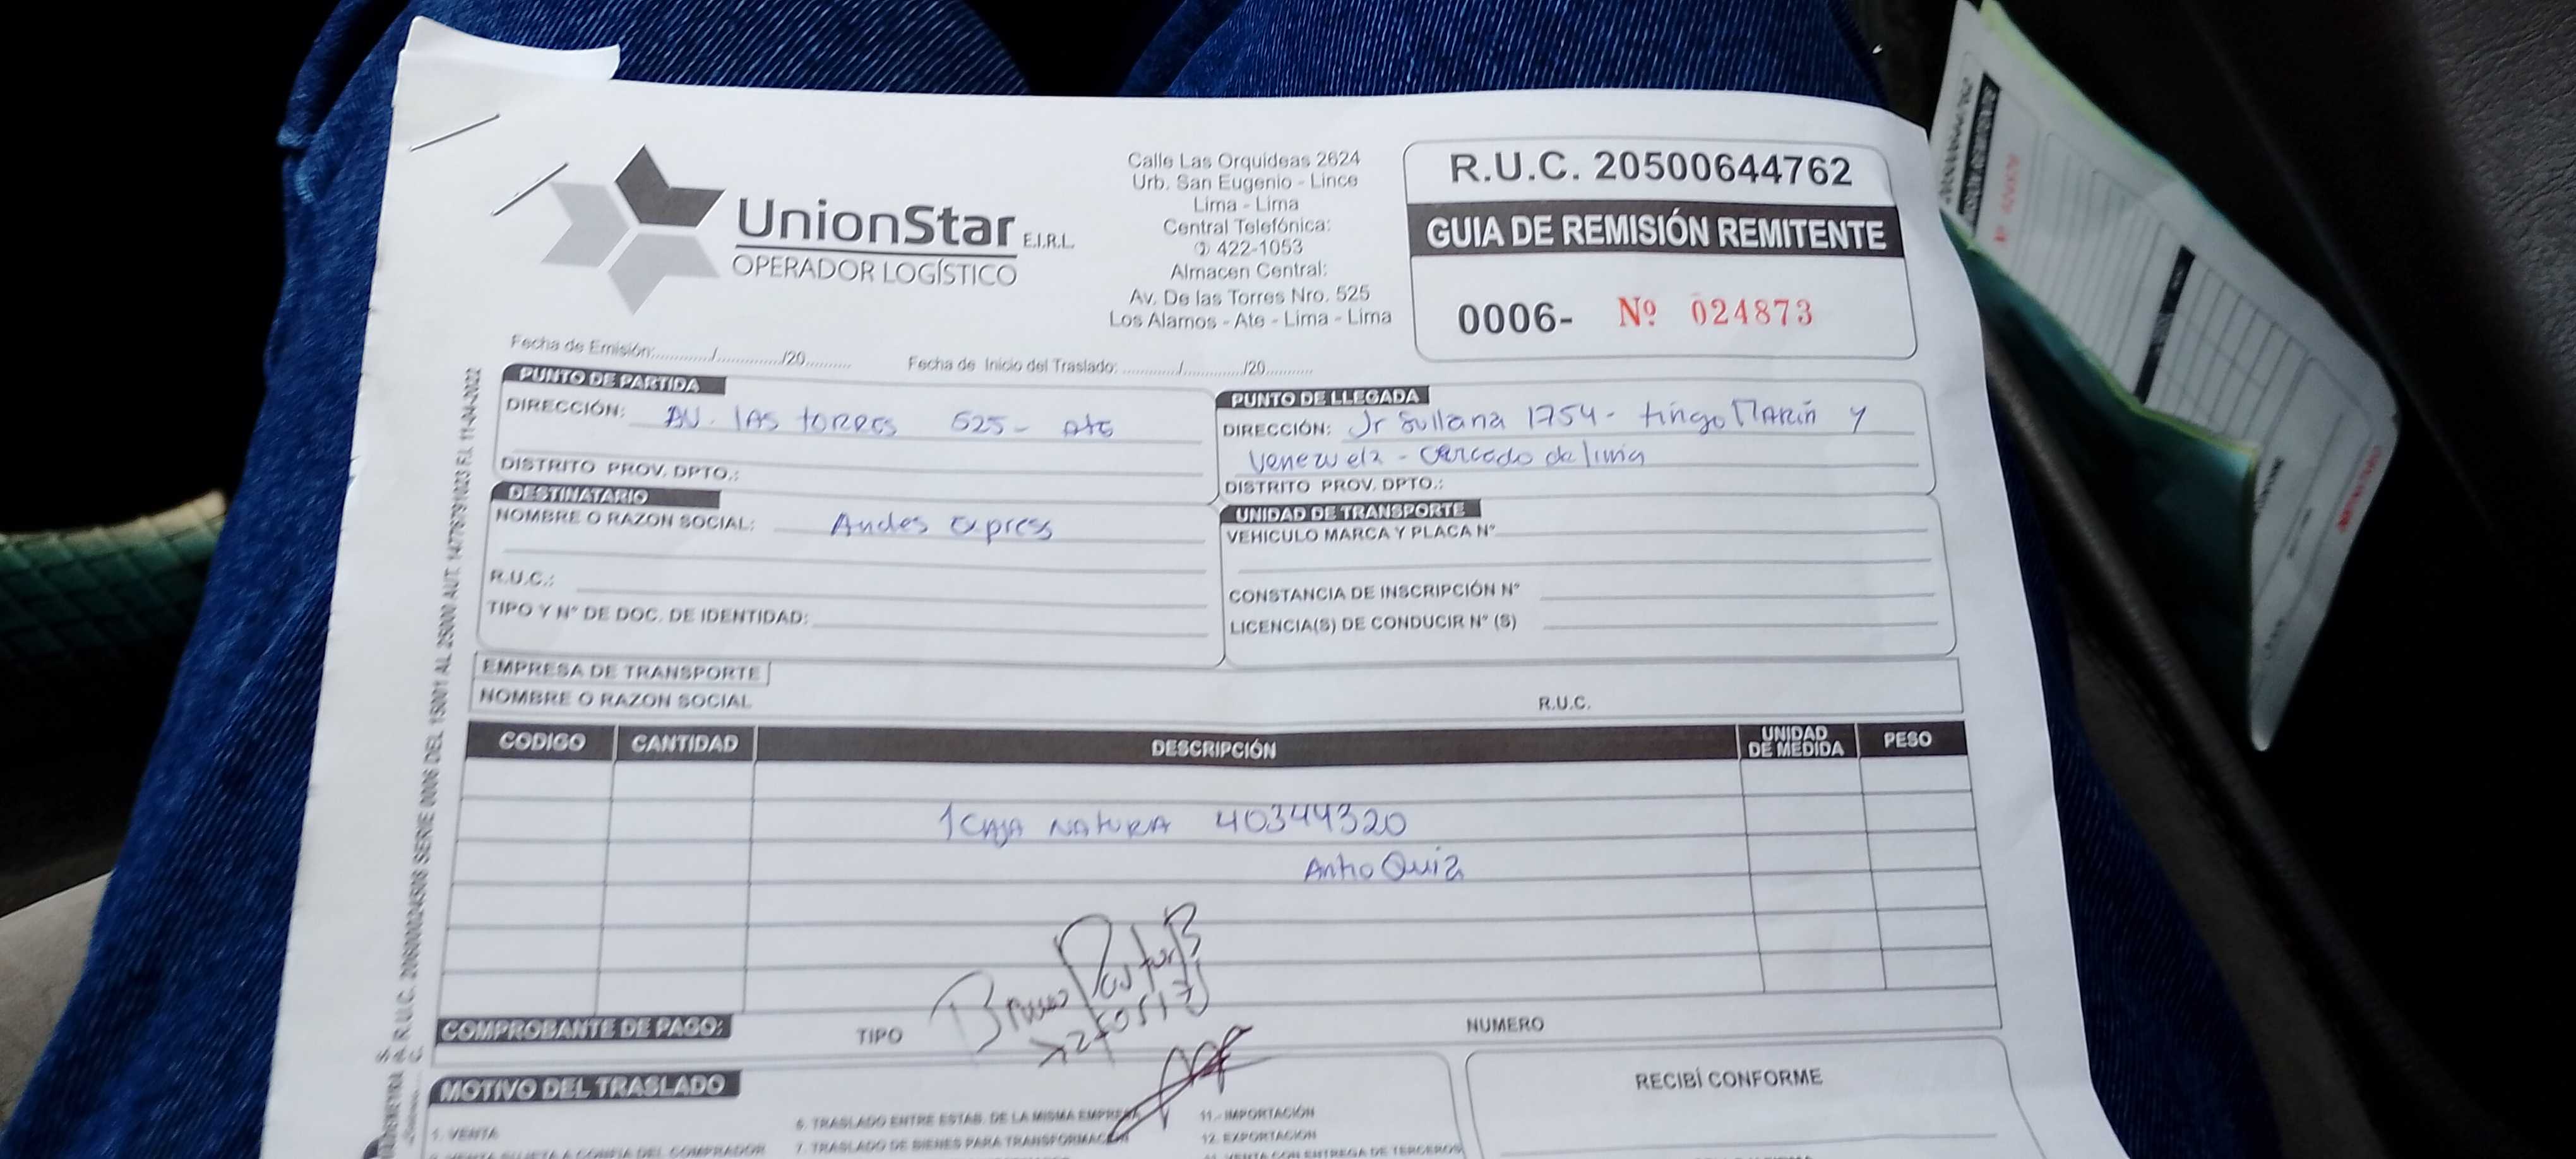 UnionStar E.I.R.L.
OPERADOR LOGÍSTICO
Calle Las Orquideas 2624
Urb. San Eugenio - Lince
Lima - Lima
Central Telefónica:
422-1053
Almacen Central:
Av. De las Torres Nro. 525
Los Alamos - Ate - Lima - Lima
R.U.C. 20500644762
GUIA DE REMISIÓN REMITENTE
0006- Nº 024873
Fecha de Emisión:............/............../20..........
Fecha de Inicio del Traslado: ............/............../20..........
PUNTO DE PARTIDA
DIRECCIÓN: AV. LAS TORRES 525 - Ate
DISTRITO PROV. DPTO.:
PUNTO DE LLEGADA
DIRECCIÓN: Jr Sullana 1754 - tingo MARIN y
Venezuela - Cercado de lima
DISTRITO PROV. DPTO.:
DESTINATARIO
NOMBRE O RAZON SOCIAL: Andes Express
R.U.C.:
TIPO Y N° DE DOC. DE IDENTIDAD:
UNIDAD DE TRANSPORTE
VEHICULO MARCA Y PLACA N°
CONSTANCIA DE INSCRIPCIÓN N°
LICENCIA(S) DE CONDUCIR N° (S)
EMPRESA DE TRANSPORTE
NOMBRE O RAZON SOCIAL R.U.C.
CODIGO CANTIDAD DESCRIPCIÓN UNIDAD DE MEDIDA PESO
1 CAJA NATURA 40344320
AntioQuia
COMPROBANTE DE PAGO: TIPO NUMERO
MOTIVO DEL TRASLADO
1. VENTA
6. TRASLADO ENTRE ESTAB. DE LA MISMA EMPRESA
7. TRASLADO DE BIENES PARA TRANSFORMACIÓN
11.- IMPORTACIÓN
12. EXPORTACION
RECIBÍ CONFORME